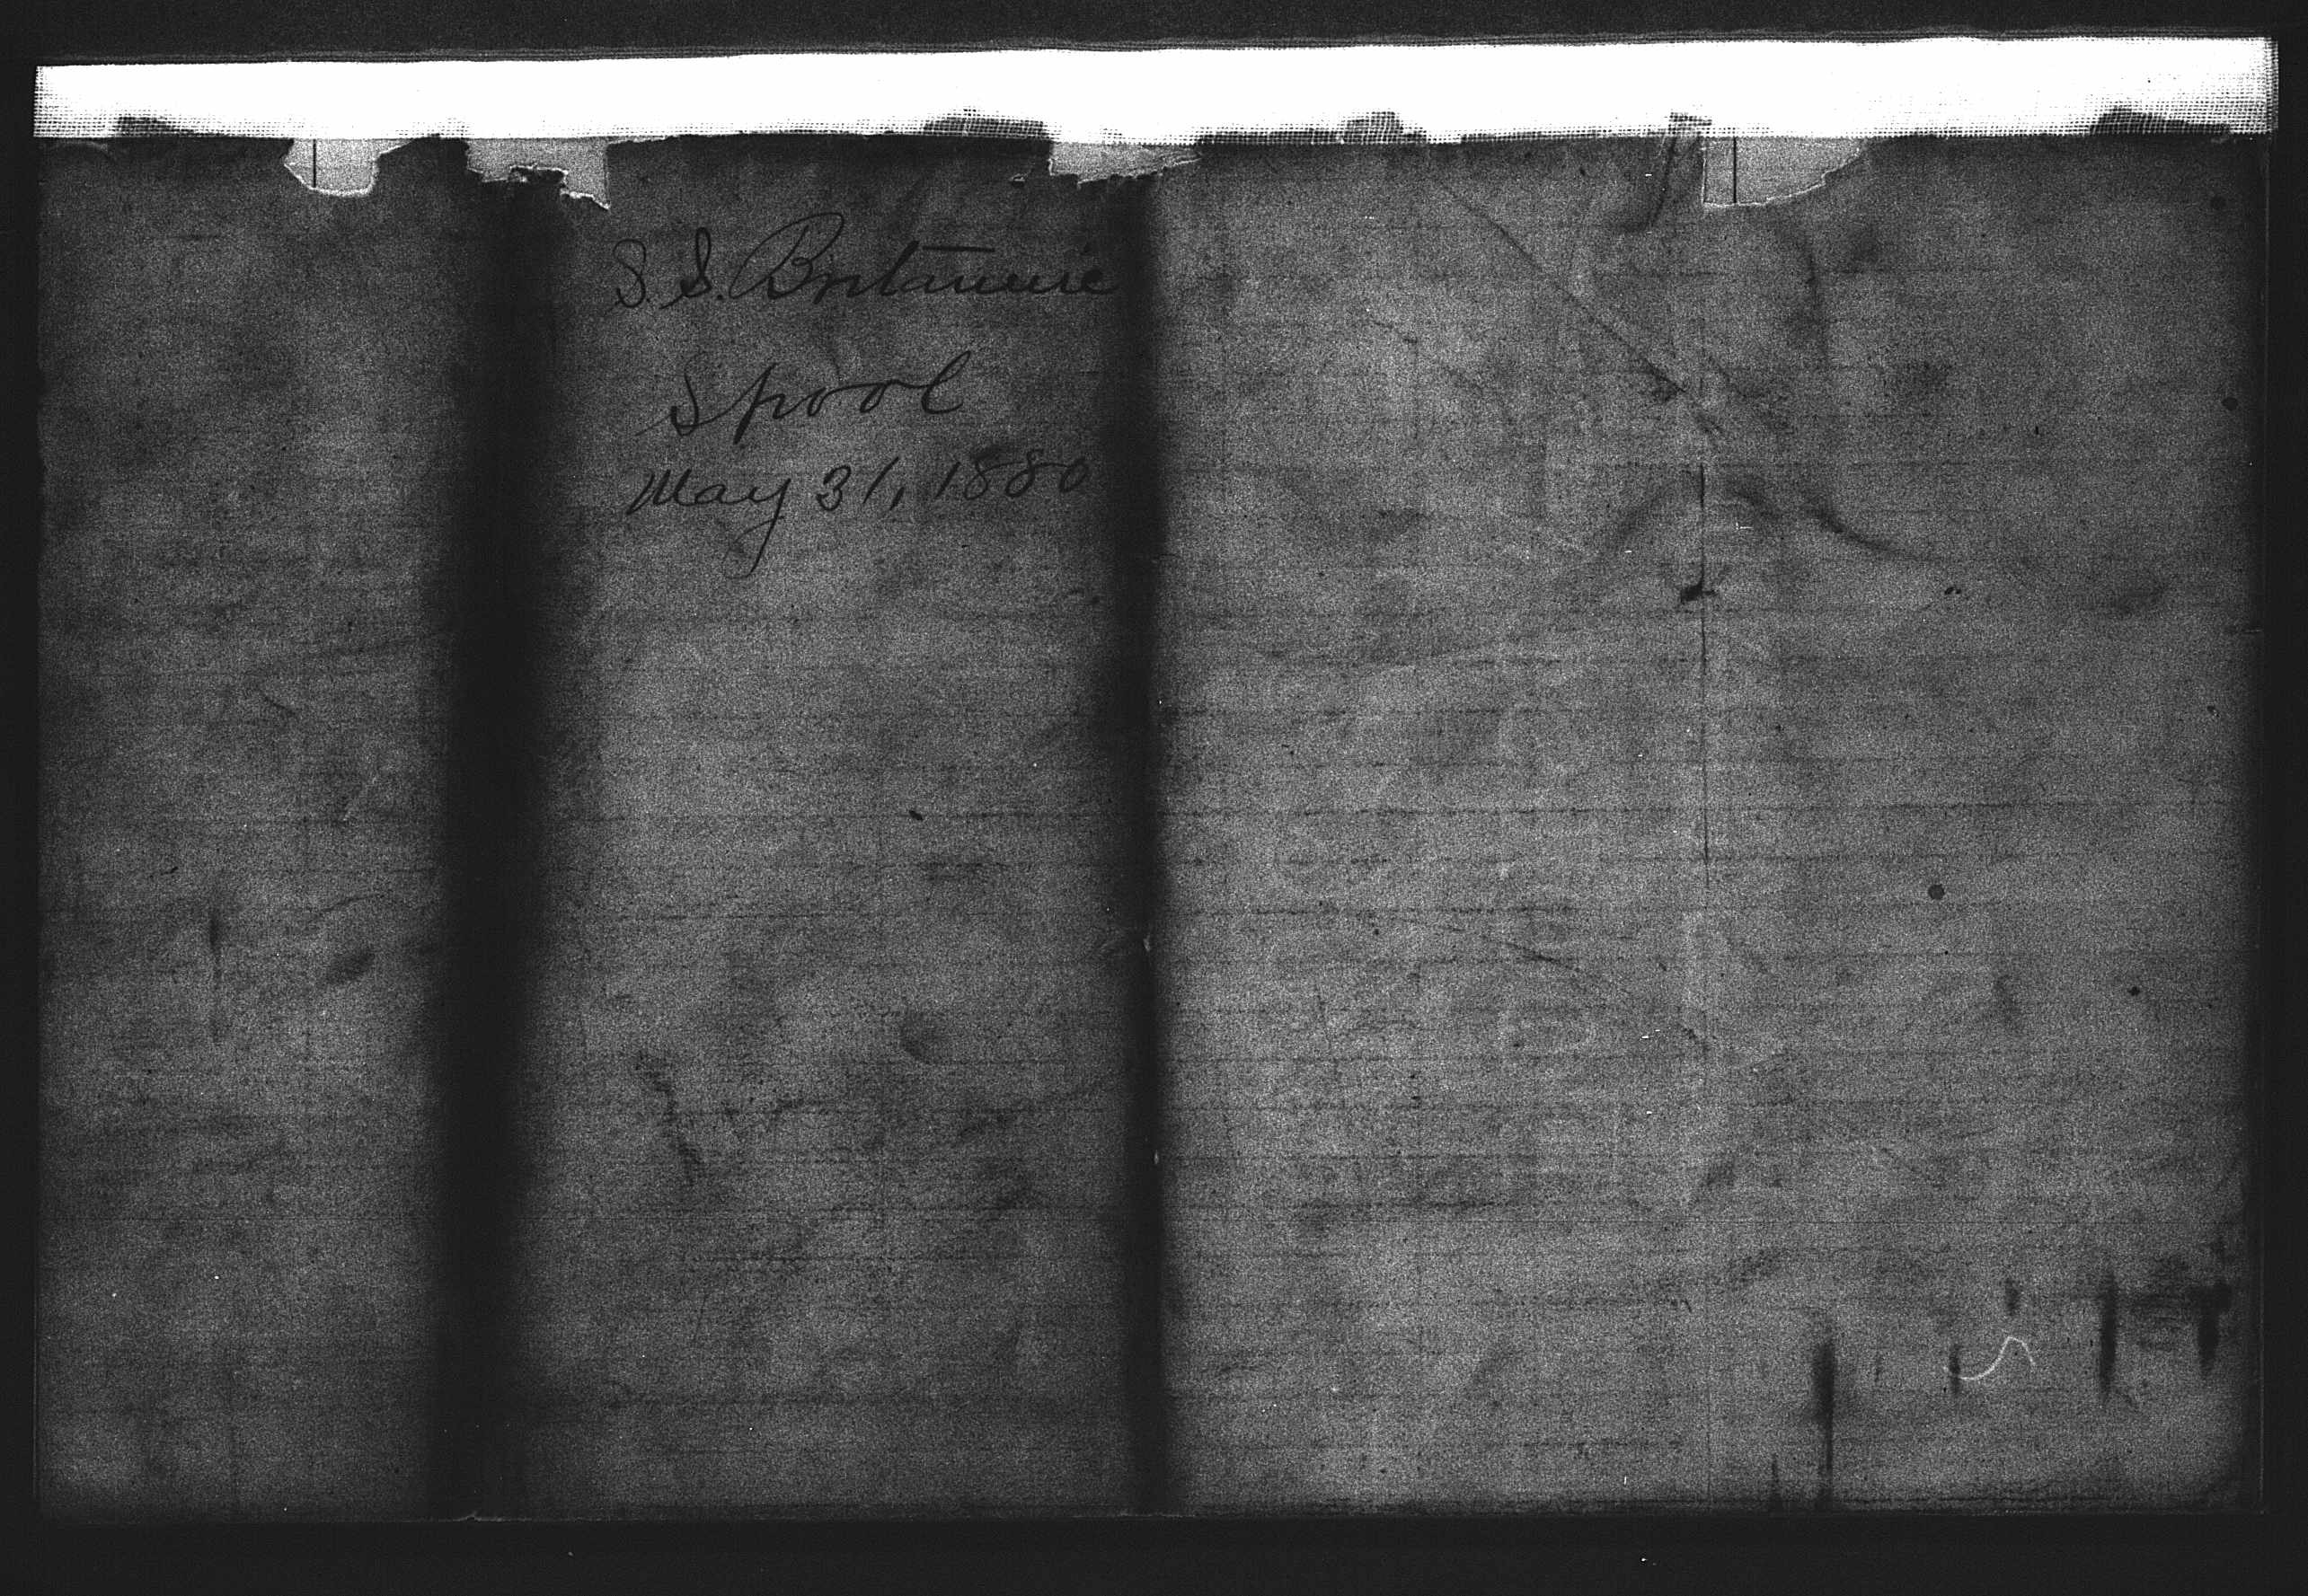 S. S. Britannic
Spool
May 31, 1880